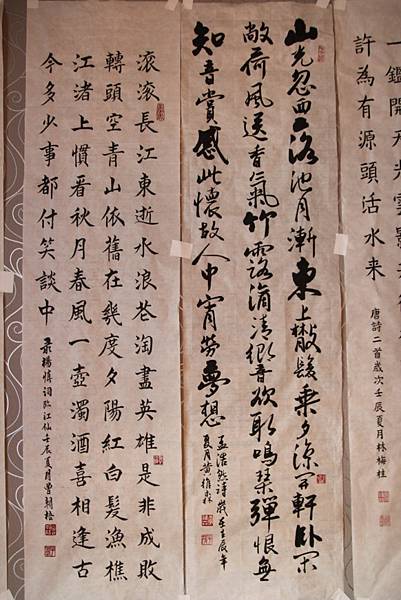 一鑑開天光雲影共
許為有源頭活水来
唐詩二首歲次壬辰夏月林梅桂
山光忽西落池月漸東上散髮乘夕涼開軒臥閑
敞荷風送香氣竹露滴清響欲取鳴琴彈恨無
知音賞感此懷故人中宵勞夢想
孟浩然詩歲壬辰年
夏月黃維森
滾滾長江東逝水浪花淘盡英雄是非成敗
轉頭空青山依舊在幾度夕陽紅白髮漁樵
江渚上慣看秋月春風一壺濁酒喜相逢古
今多少事都付笑談中
录楊慎詞臨江仙壬辰夏月曾朝